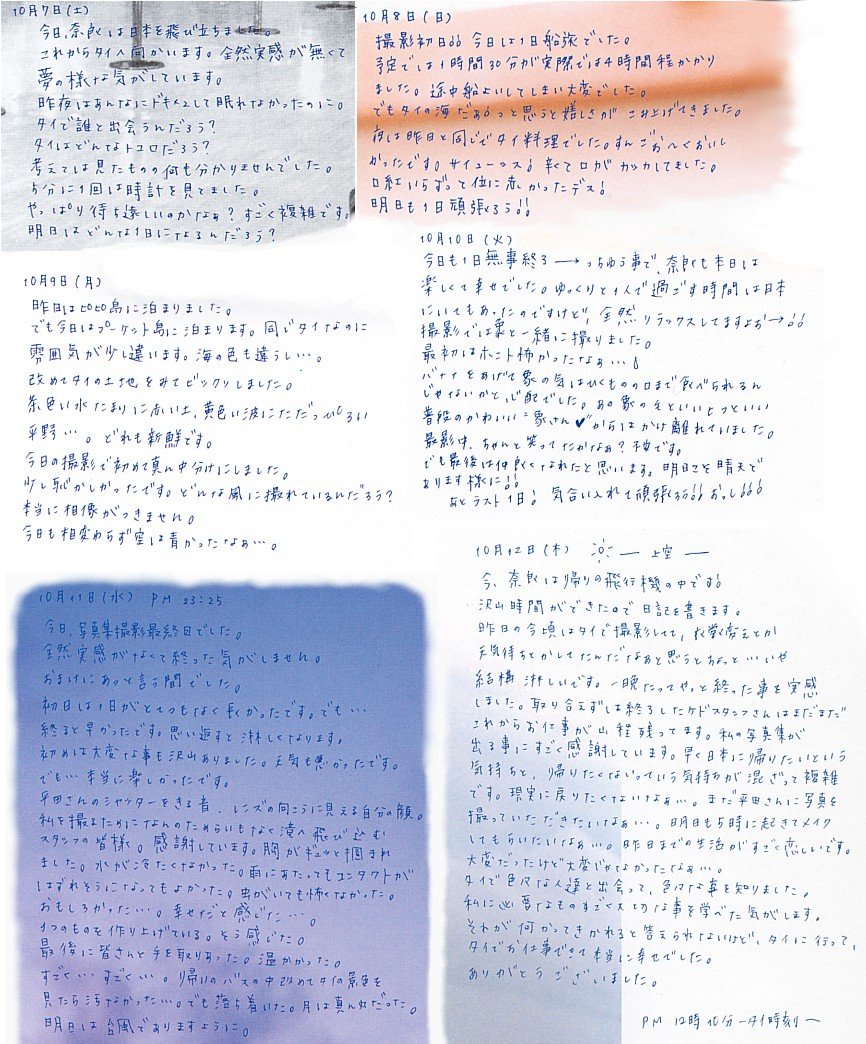 10月7日(土)
今日、奈良は日本を飛び立ちました。
これからタイへ向かいます。全然実感が無くて
夢の様な気がしています。
昨夜はあんなにドキドキして眠れなかったのに。
タイで誰と出会うんだろう?
タイはどんなトコロだろう?
考えては見たものの何も分かりませんでした。
5分に1回は時計を見てました。
やっぱり待ち遠しいのかなぁ?すごく複雑です。
明日はどんな1日になるんだろう?
10月8日(日)
撮影初日!! 今日は1日船旅でした。
予定では1時間30分が実際では4時間程かかり
ました。途中船よいしてしまい大変でした。
でもタイの海だぁ!っと思うと嬉しさがこみ上げてきました。
夜は昨日と同じでタイ料理でした。すんごぉ〜くおいし
かったです。サイコーッス!辛くて口がカッカしてました。
口紅いらずって位に赤かったデス!
明日も1日頑張るう!!
10月9日(月)
昨日はピピ島に泊まりました。
でも今日はプーケット島に泊まります。同じタイなのに
雰囲気が少し違います。海の色も違うし…。
改めてタイの土地をみてビックリしました。
茶色い水たまりに赤い土、黄色い波にただだっぴろい
平野…。どれも新鮮です。
今日の撮影で初めて真ん中分けにしました。
少し恥かしかったです。どんな風に撮れているんだろう?
本当に想像がつきません。
今日も相変わらず空は青かったなぁ…。
10月10日(火)
今日も1日無事終了→っちゅう事で、奈良も本日は
楽しくて幸せでした。ゆっくりと1人で過ごす時間は日本
にいてもあったのですけど、全然リラックスしてますよぉ→!!
撮影では象と一緒に撮りました。
最初はホント怖かったなぁ…!
バナナをあげて象の気はひくものの口まで食べられるん
じゃないかと心配でした。あの象の そといい といい
普段のかわいい"象さん♥"からはかけ離れていました。
撮影中、ちゃんと笑ってたかなぁ?不安です。
でも最後は仲良くなれたと思います。明日こそ晴天で
あります様に!!
あとラスト1日!気合い入れて頑張るう!!おっし!!!
10月11日(水) PM 23:25
今日、写真集撮影最終日でした。
全然実感がなくて終った気がしません。
おまけにあっと言う間でした。
初日は1日がとてつもなく長かったです。でも…
終ると早かったです。思い返すと淋しくなります。
初めは大変な事も沢山ありました。天気も悪かったです。
でも…本当に楽しかったです。
平田さんのシャッターをきる音、レンズの向こうに見える自分の顔。
私を撮るためになんのためらいもなく滝へ飛び込む
スタッフの皆様。感謝しています。胸がギュッと掴まれ
ました。水が冷たくなかった。雨にあたってもコンタクトが
はずれそうになってもよかった。虫がいても怖くなかった。
おもしろかった…。幸せだと感じた…。
1つのものを作り上げている。そう感じた。
最後に皆さんと手を取りあった。温かかった。
すごく…すごく…。帰りのバスの中改めてタイの景色を
見たら泣けなかった…。でも落ち着いた。月は真ん丸だった。
明日は台風でありますように。
10月12日(木) ―上空―
今、奈良は帰りの飛行機の中です!
沢山時間ができたので日記を書きます。
昨日の今頃はタイで撮影してて、衣裳変えとか
天気待ちとかしてたんだなぁと思うとちょっと…いや
結構淋しいです。一晩たってやっと終った事を実感
しました。取り合えずは終了したケドスタッフさんはまだまだ
これからお仕事が山程残ってます。私の写真集が
出る事にすごく感謝しています。早く日本に帰りたいという
気持ちと、帰りたくないっていう気持ちが混ざって複雑
です。現実に戻りたくないなぁ…。まだ平田さんに写真を
撮っていただきたいなぁ…。明日も5時に起きてメイク
してもらいたいなぁ…。昨日までの生活がすごく恋しいです。
大変だったけど大変じゃなかったなぁ…。
タイで色々な人達と出会って、色々な事を知りました。
私に必要なものすごく大切な事を学べた気がします。
それが何かってきかれると答えられないけど、タイに行って、
タイでお仕事できて本当に幸せでした。
ありがとうございました。
PM 12時10分−タイ時刻〜